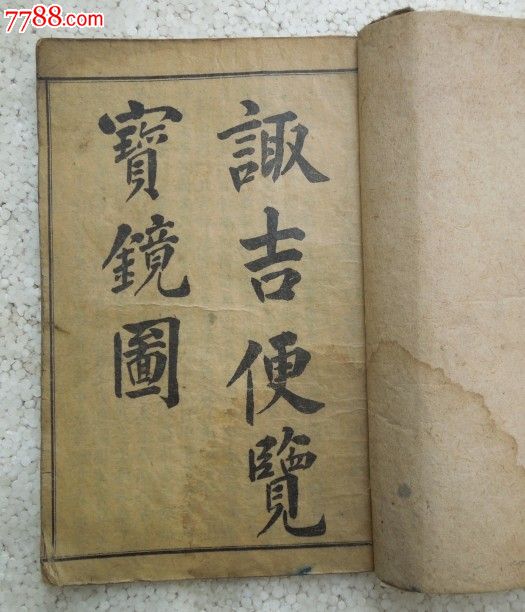 7788.com
諏吉便覽
寶鏡圖